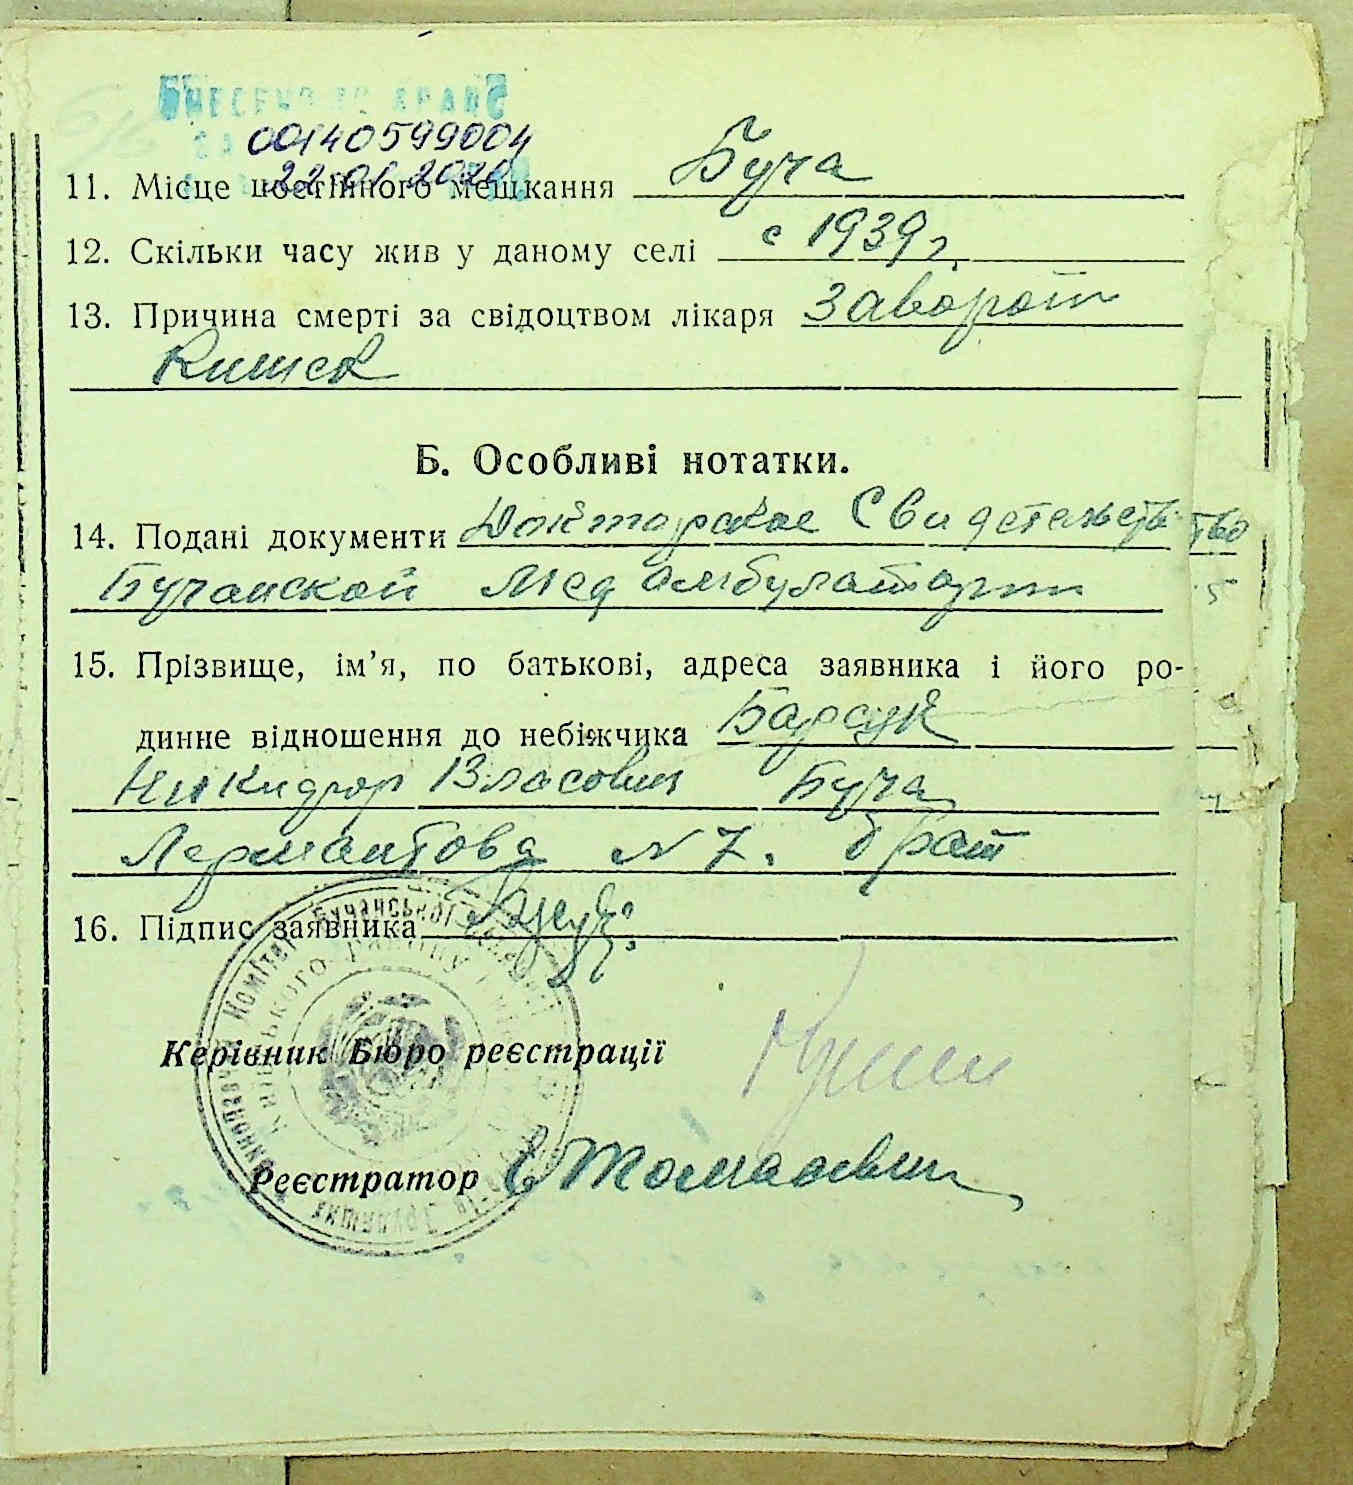 ВНЕСЕНО ДО ДРАЦС
00140599004
22.01.2020
11. Місце постійного мешкання Буча
12. Скільки часу жив у даному селі с 1939 г.
13. Причина смерті за свідоцтвом лікаря Заворот
Кишек
Б. Особливі нотатки.
14. Подані документи Докторское Свидетельство
Бучанской Мед амбулатории
15. Прізвище, ім'я, по батькові, адреса заявника і його ро-
динне відношення до небіжчика Барсук
Никифор Власович Буча
Лермантова N 7. брат
16. Підпис заявника
Керівник Бюро реєстрації
Реєстратор Томашевич